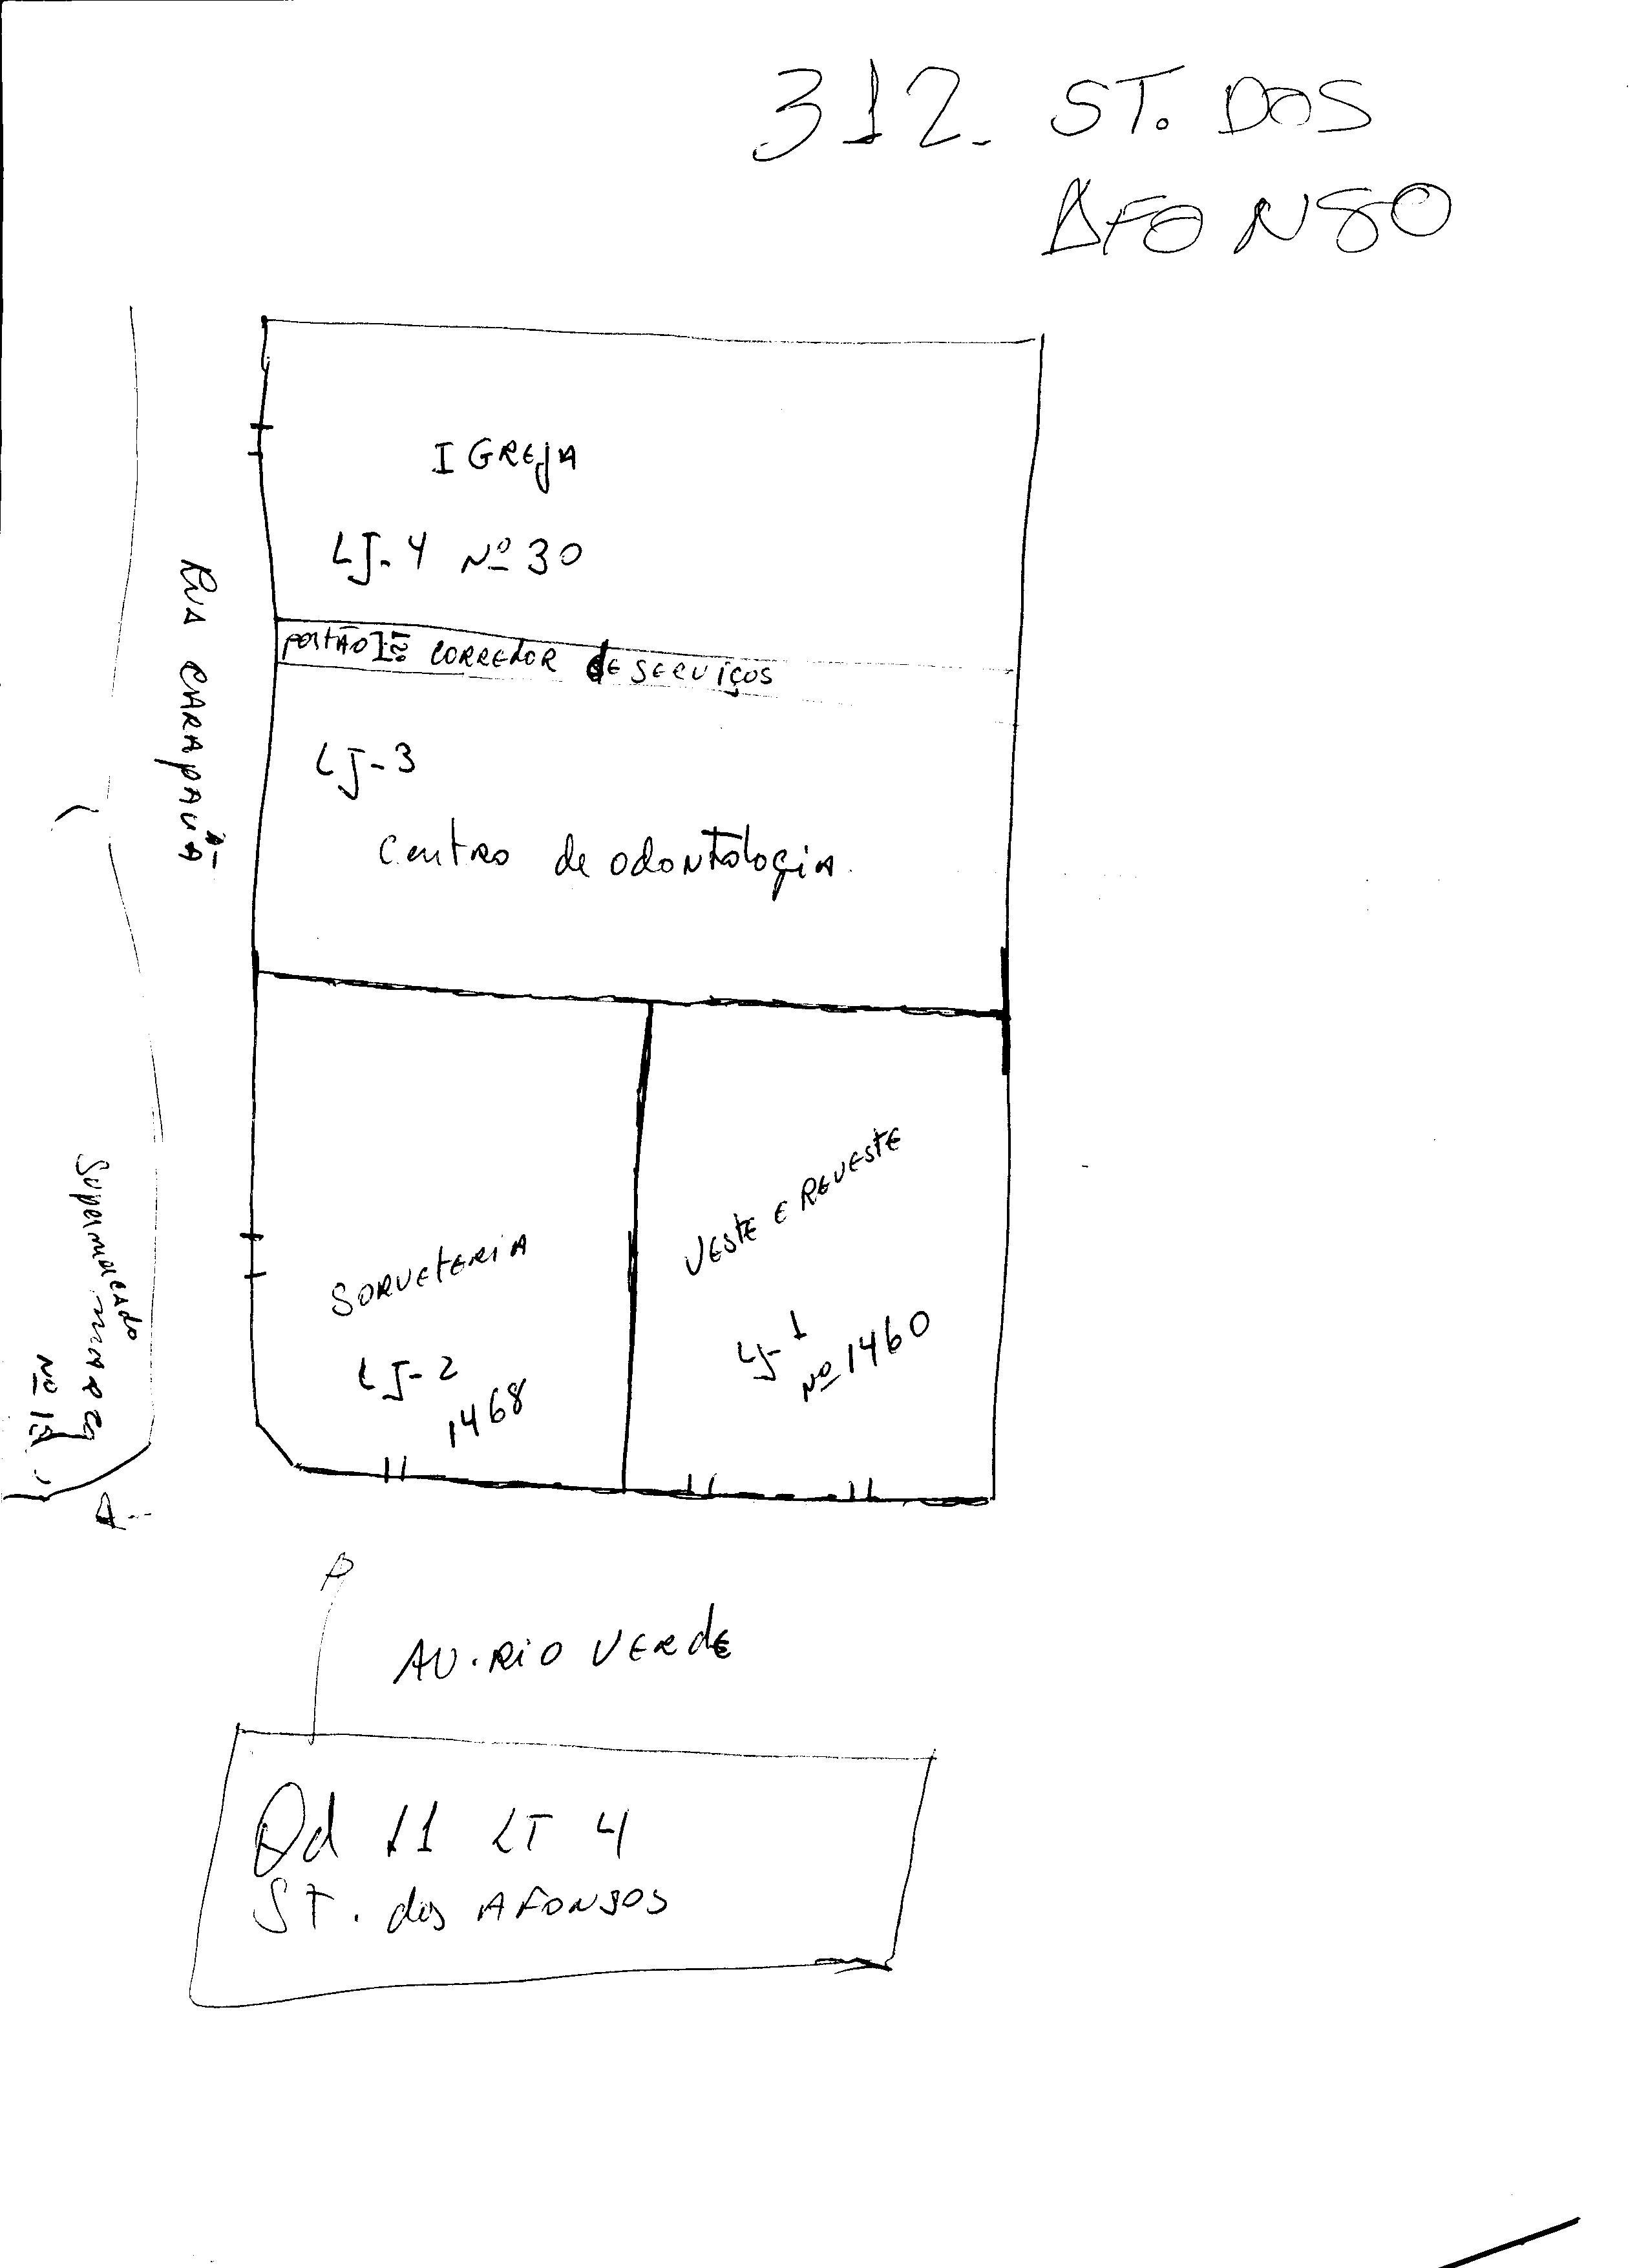 312. ST. DOS
AFONSO
IGREJA
LJ-4 Nº 30
PORTÃO CORREDOR DE SERVIÇOS
LJ-3
Centro de odontologia.
RUA
SORVETERIA
LJ-2
1468
VESTE E REVESTE
LJ-1
Nº 1460
Nº
AV. RIO VERDE
Qd 11 LT 4
ST. dos AFONSOS